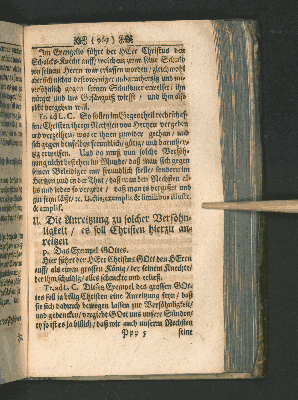 Im Evangelio führt der HErr Christus den
Schalcks-Knecht auff, welchem zwar seine Schuld
von seinem Herrn war erlassen worden / gleichwohl
aber sich nichts destoweniger unbarmhertzig und un-
versöhnlich gegen seinen Schuldner erweiset / ihn
würget und ins Gefängnis wirfft / und ihm also
nicht vergeben will.
So sollen im Gegentheil rechtschaf-
fene Christen ihrem Nechsten von Hertzen vergeben
und vergessen / was er ihnen zuwider gethan / und
sich gegen denselben freundlich / gütig und barmher-
tzig erweisen. Und da muß nun solche Versöh-
nung nicht bestehen im Munde / daß man sich gegen
seinen Beleidiger nur freundlich stelle / sondern im
Hertzen und in der That / daß man dem Nechsten
und jedes so vergebe / daß man es vergesse und
exempla
& amplif.
II. Die Anreitzung zu solcher Versöhn-
ligkeit / es soll Christen hierzu an-
reitzen
Das Exempel GOttes.
Hier führet der HErr Christus GOtt den HErrn
auff als einen grossen König / der seinem Knechte /
der ihm schuldig / alles schenckte und erließ.
Dieses Exempel des grossen GOt-
tes soll ja billig Christen eine Anreitzung seyn / daß
sie sich dadurch bewegen lassen zur Versöhnligkeit /
und gedencken / vergiebt GOtt uns unsere Sünden /
ey so ist es ja billich / daß wir auch unserm Nechsten
Ppp 5 seine